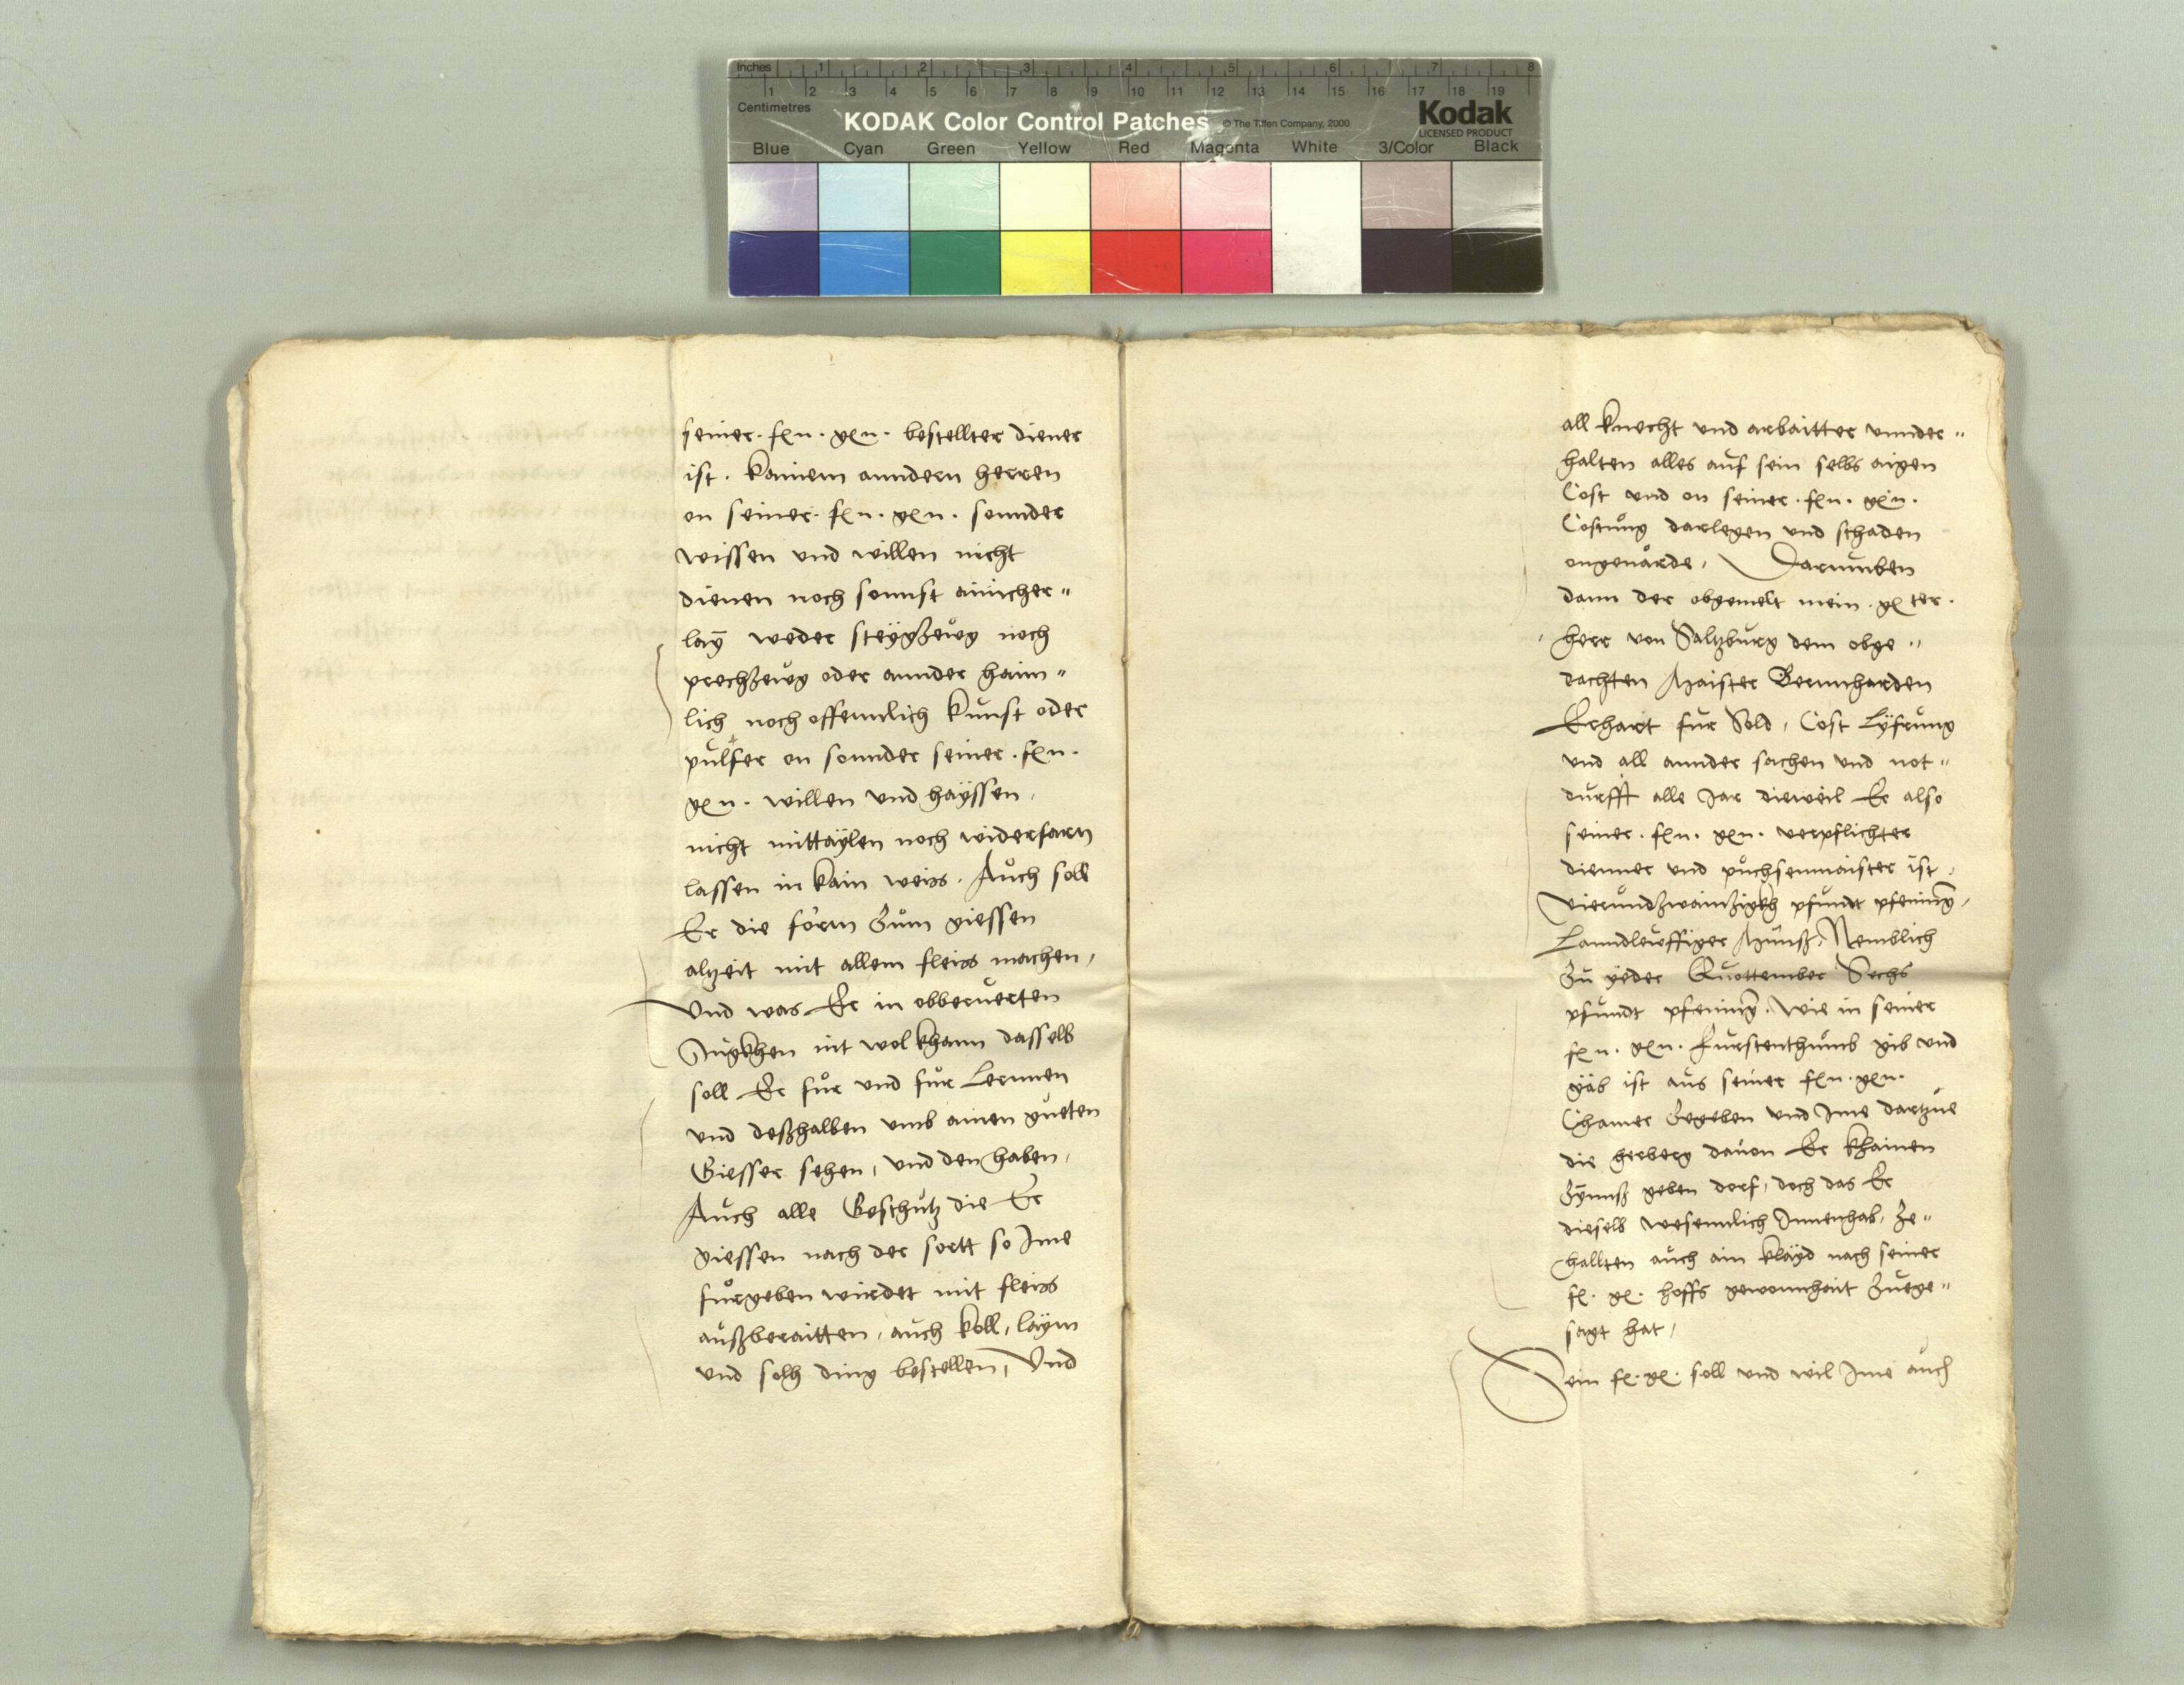 Inches 1 2 3 4 5 6 7 8
Centimetres 1 2 3 4 5 6 7 8 9 10 11 12 13 14 15 16 17 18 19
KODAK Color Control Patches © The Tiffen Company, 2000 Kodak
LICENSED PRODUCT
Blue Cyan Green Yellow Red Magenta White 3/Color Black
seiner. f. gn. bestellter diener
ist. kainem anndern herren
on seiner. f. gn. sonnder
wissen und willen nicht
dienen noch sonnst ainicher„
lay weder steygzeug noch
prechzeug oder annder haim„
lich noch offennlich kunst oder
pulfer on sonnder seiner. f.
gn. willen und hayssen,
nicht mittaylen noch widerfarn
lassen in kain weiss. Auch soll
Er die form zum giessen
altzeit mit allem fleiss machen,
Und was Er in obberuerten
Stugkhen nit wol khann dasselb
soll Er fur und fur Lernnen
und deßhalben umb ainen gueten
Giesser sehen, und den haben,
Auch alle Geschutz die Er
giessen nach der sortt so Ime
furgeben wirdet mit fleiss
außberaitten, auch koll, laym
und solh ding bestellen, Und
all knecht und arbaitter unnder„
halten alles auf sein selbs aigen
Cost und on seiner. f. gn.
Costung darlegen und schaden
ongeuärde, Darumben
dann der obgemelt mein. gter.
herr von Saltzburg dem obge„
dachten Maister Bernnharden
Erhart fur Sold, Cost Lyfrung
und all annder sachen und not„
durfft alle Jar dieweil Er also
seiner. f. gn. verpflichter
dienner und puchsenmaister ist,
Vierundzwainzigkh pfundt pfening,
Lanndleuffiger Munß, Nemblich
zu yeder Quottember Sechs
pfundt pfening. Wie in seiner
f. gn. Furstenthumb gib und
gäb ist aus seiner f. gn.
Chamer zegeben und Ime dartzue
die herberg dauon Er khainen
Zynnß geben dorf, doch das Er
dieselb wesennlich Innenhab, Ze„
hallten auch ain klayd nach seiner
f. g. hoffs gewonnhait zuege„
sagt hat,
Sein f. g. soll und wil Ime auch